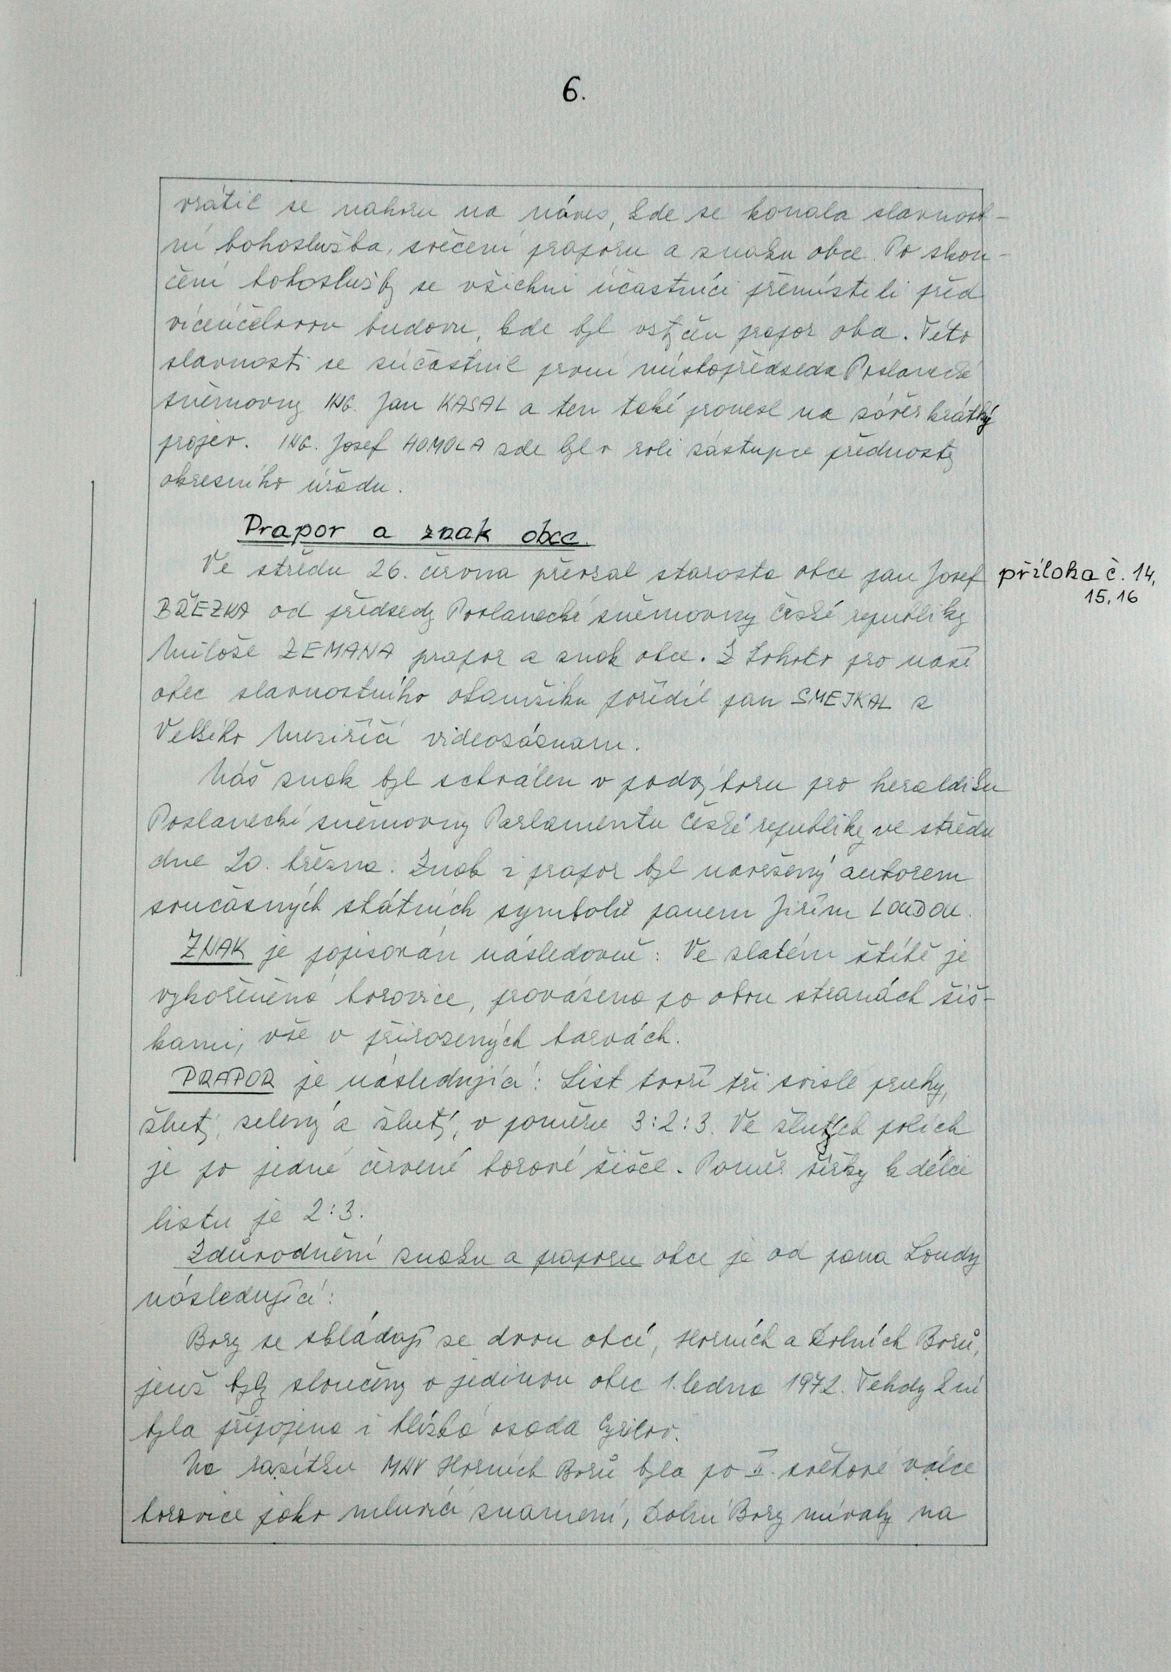 6.
vrátil se nahoru na náves, kde se konala slavnost-
ní bohoslužba, svěcení praporu a znaku obce. Po skon-
čení bohoslužby se všichni účastníci přemístili před
víceúčelovou budovu, kde byl vztyčen prapor obce. Této
slavnosti se zúčastnil první místopředseda Poslanecké
sněmovny ING. Jan KASAL a ten také pronesl na závěr krátký
projev. ING. Josef HOMOLA zde byl v roli zástupce přednosty
okresního úřadu.
Prapor a znak obce.
Ve středu 26. června převzal starosta obce pan Josef
BŘEZKA od předsedy Poslanecké sněmovny České republiky
Miloše ZEMANA prapor a znak obce. Z tohoto pro naši
obec slavnostního okamžiku pořídil pan SMEJKAL z
Velkého Meziříčí videozáznam.
příloha č. 14,
15, 16
Náš znak byl schválen v podvýboru pro heraldiku
Poslanecké sněmovny Parlamentu České republiky ve středu
dne 20. března. Znak i prapor byl navržený autorem
současných státních symbolů panem Jiřím LOUDOU.
ZNAK je popisován následovně: Ve zlatém štítě je
vykořeněná borovice, provázena po obou stranách šiš-
kami, vše v přirozených barvách.
PRAPOR je následující: List tvoří tři svislé pruhy,
žlutý, zelený a žlutý, v poměru 3:2:3. Ve žlutých polích
je po jedné červené borové šišce. Poměr šířky k délce
listu je 2:3.
Zdůvodnění znaku a praporu obce je od pana Loudy
následující:
Bory se skládají ze dvou obcí, Horních a Dolních Borů,
jenž byly sloučeny v jedinou obec 1. ledna 1972. Tehdy k ní
byla připojena i blízká osada Cyrilov.
Na razítku MNV Horních Borů byla po II. světové válce
borovice jako mluvící znamení, Dolní Bory mívaly na